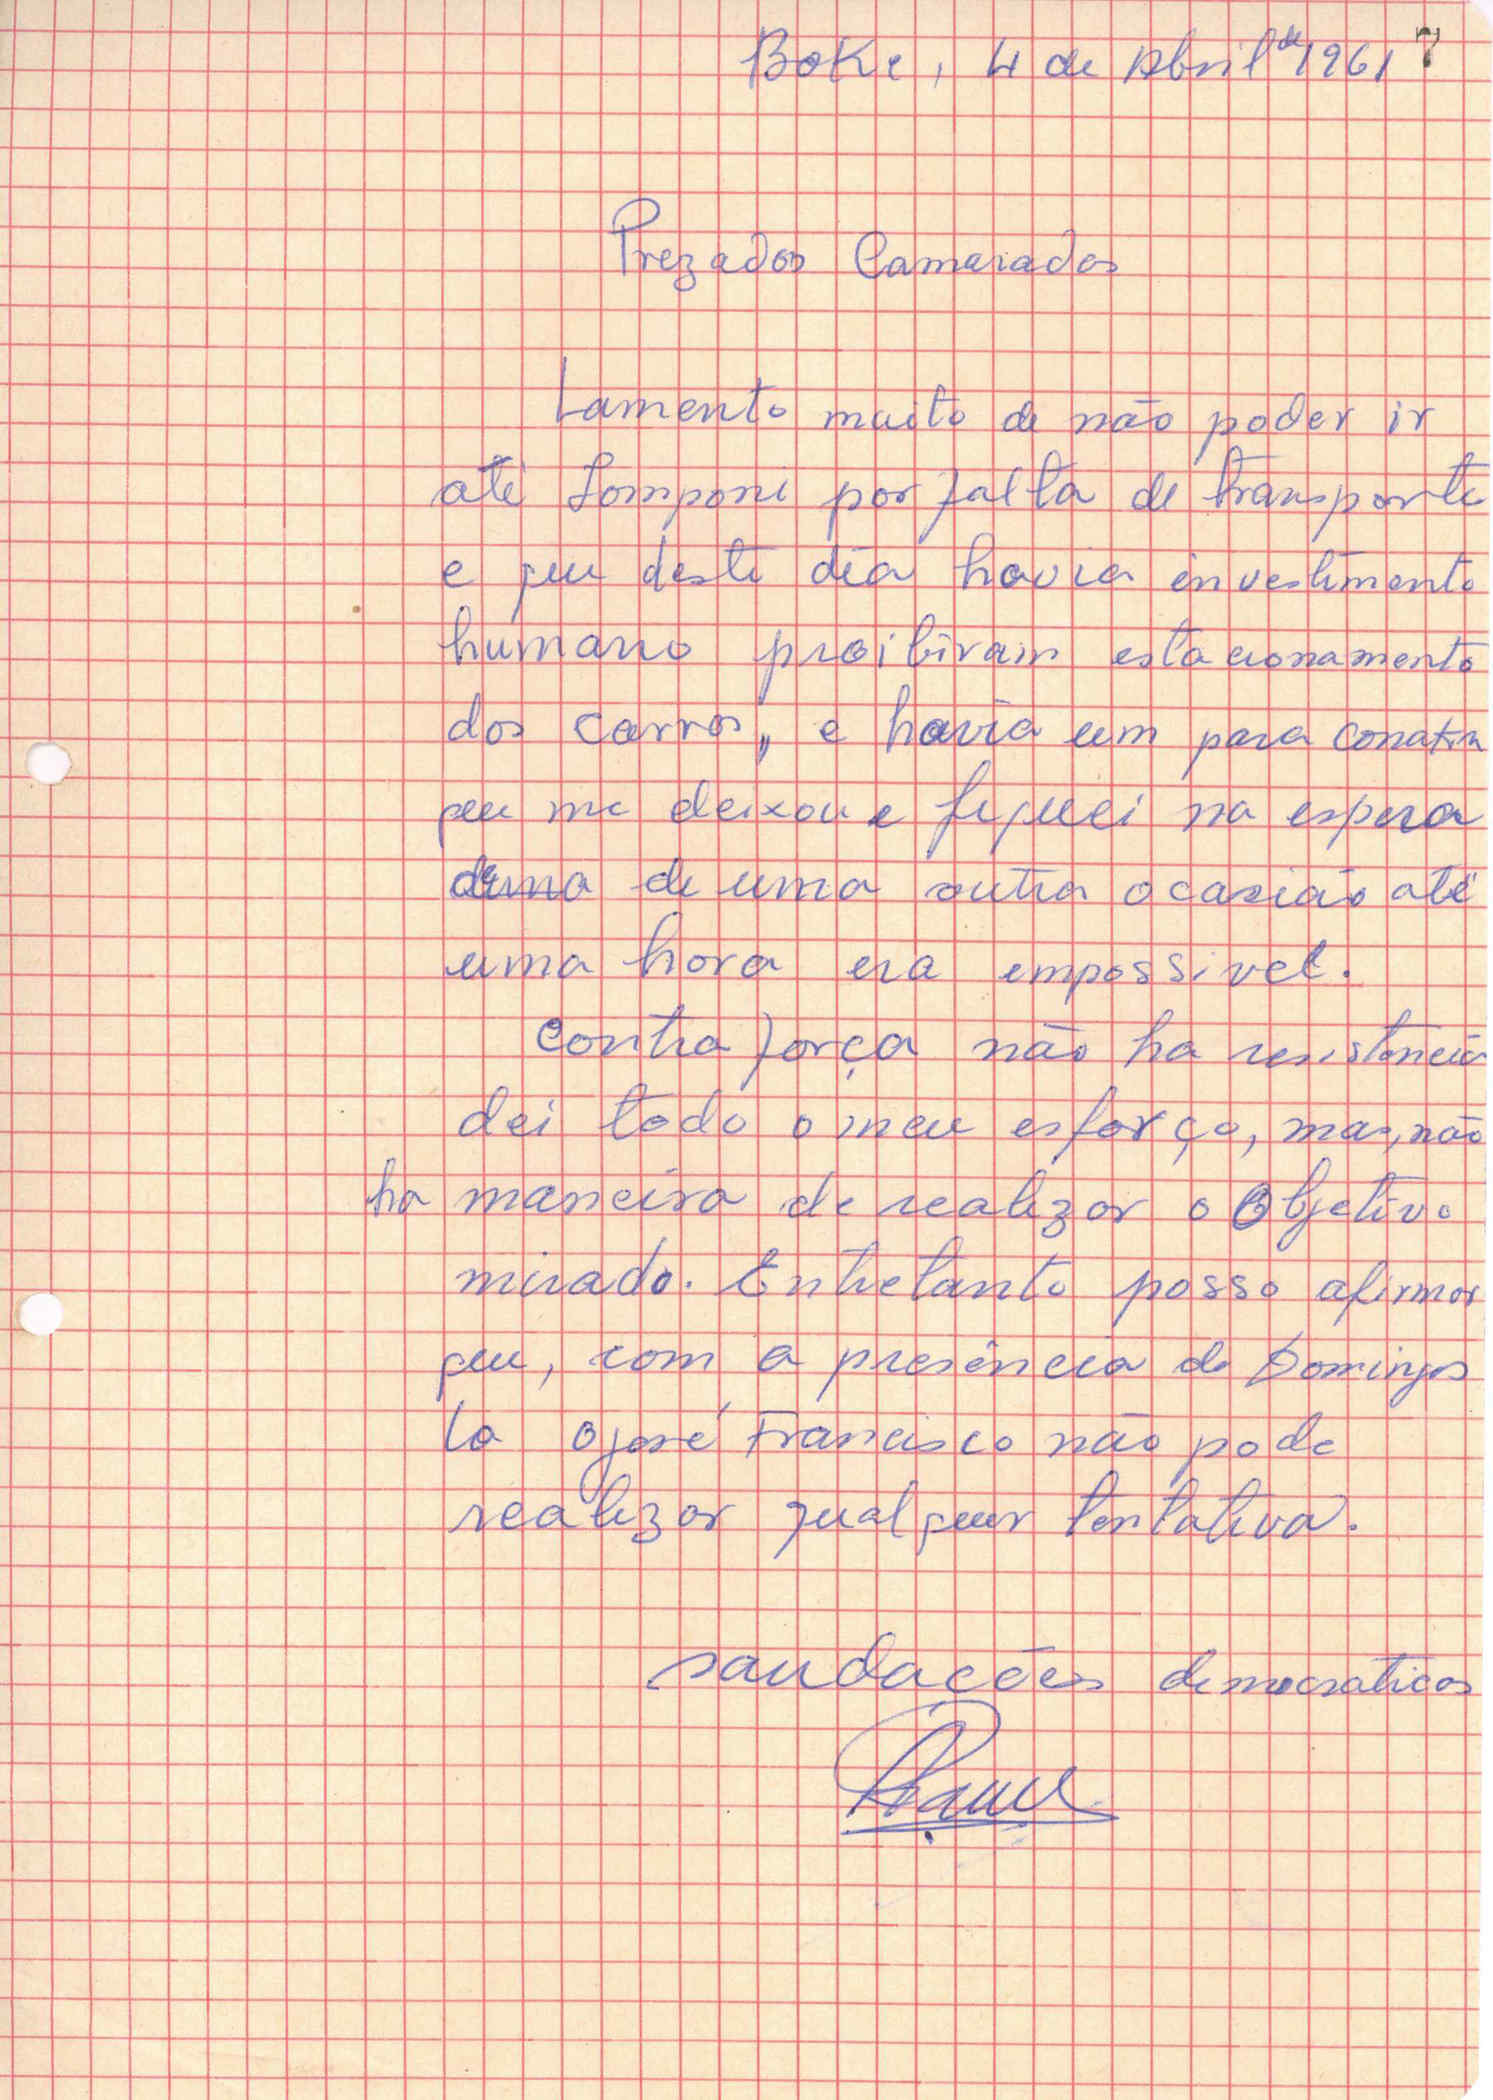 Boke, 4 de Abril de 1961 7
Prezados Camaradas
Lamento muito de não poder ir
até por falta de transporte
e que deste dia havia investimento
humano proibiram estacionamento
dos carros, e havia um para
que me deixou e fiquei na espera
de uma outra ocasião até
uma hora era empossivel.
Contra força não ha resistencia
dei todo o meu esforço, mas, não
ha maneira de realizar o Objetivo
mirado. Entretanto posso afirmar
que, com a presência do Domingos
la o José Francisco não pode
realizar qualquer tentativa.
saudações democraticas